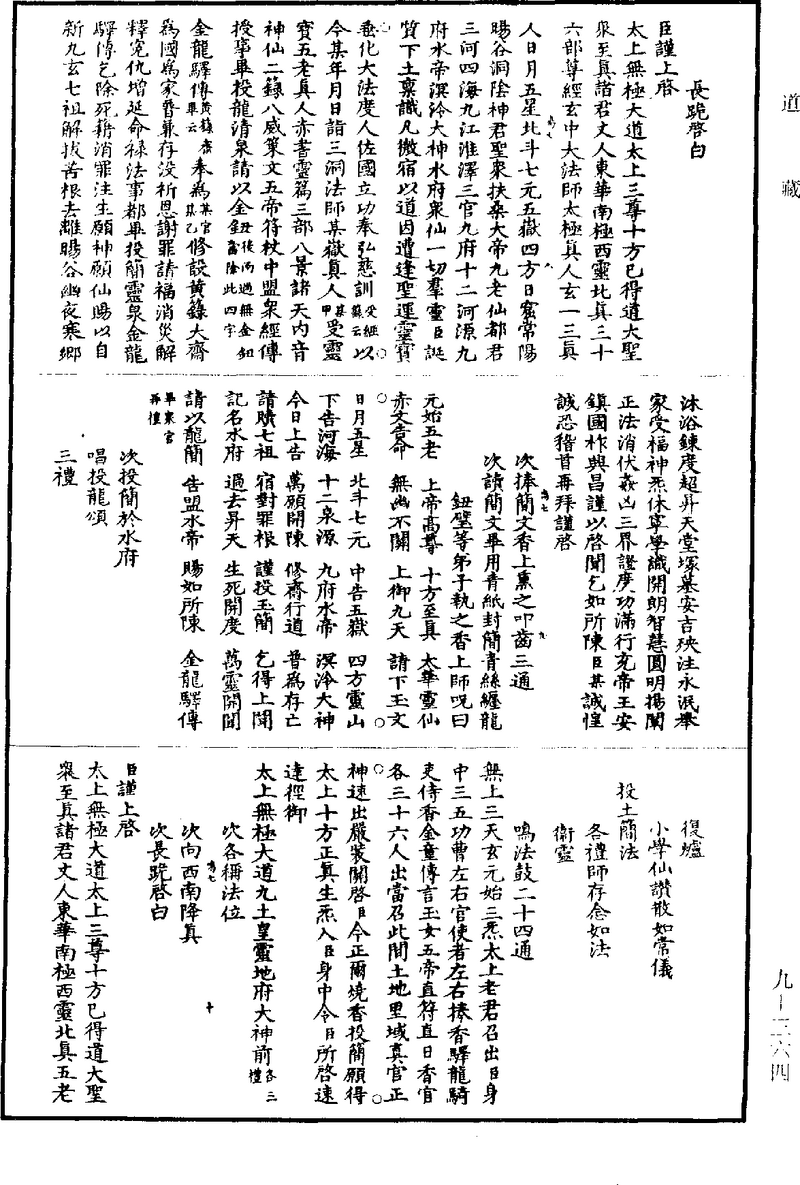 道藏
長跪啓白
臣謹上啓
太上無極大道太上三尊十方已得道大聖
衆至真諸君丈人東華南極西靈北真三十
六部尊經玄中大法師太極真人玄一三真
人日月五星北斗七元五嶽四方日窟常陽
暘谷洞陰神君聖衆扶桑大帝九老仙都君
三河四海九江淮澤三官九府十二河源九
府水帝溟泠大神水府衆仙一切羣靈臣誕
質下土稟識凡微宿以道因遭逢聖運靈寶
垂化大法度人佐國立功奉弘慈訓受經籙云以
今某年月日詣三洞法師某嶽真人某甲受靈
寶五老真人赤書靈篇三部八景諸天內音
神仙二籙八威策文五帝符杖中盟衆經傳
授事畢投龍清泉請以金鈕丑後丙過無金鈕當除此四字
金龍驛傳黃籙齋畢云奉爲某官某乙修設黃籙大齋
爲國爲家普兼存没祈恩謝罪請福消災解
釋冤仇增延命祿法事都畢投簡靈泉金龍
驛傳乞除死籍消罪注生願神願仙賜以自
新九玄七祖解拔苦根去離暘谷幽夜寒鄉
沐浴鍊度超昇天堂塚墓安吉殃注永泯舉
家受福神炁休寧學識開朗智慧圓明揚闡
正法消伏姦凶三界證度功滿行充帝王安
鎮國祚興昌謹以啓聞乞如所陳臣某誠惶
誠恐稽首再拜謹啓
次捧簡文香上熏之叩齒三通
次讀簡文畢用青紙封簡青絲纏龍
鈕璧等弟子執之香上師呪曰
元始五老 上帝高尊 十方至真 太華靈仙
赤文告命 無幽不關 上御九天 請下玉文
日月五星 北斗七元 中告五嶽 四方靈山
下告河海 十二泉源 九府水帝 溟泠大神
今日上告 萬願開陳 修齋行道 普爲存亡
請贖七祖 宿對罪根 謹投玉簡 乞得上聞
記名水府 過去昇天 生死開度 萬靈開聞
請以龍簡 告盟水帝 賜如所陳 金龍驛傳
畢衆官再禮
次投簡於水府
唱投龍頌
三禮
復爐
小學仙讚散如常儀
投土簡法
各禮師存念如法
衛靈
鳴法鼓二十四通
無上三天玄元始三炁太上老君召出臣身
中三五功曹左右官使者左右捧香驛龍騎
吏侍香金童傳言玉女五帝直符直日香官
各三十六人出當召此間土地里域真官正
神速出嚴裝關啓臣今正爾燒香投簡願得
太上十方正真生炁入臣身中令臣所啓速
達徑御
太上無極大道九土皇靈地府大神前各三禮
次各稱法位
次向西南降真
次長跪啓白
臣謹上啓
太上無極大道太上三尊十方已得道大聖
衆至真諸君丈人東華南極西靈北真五老
九－三六四